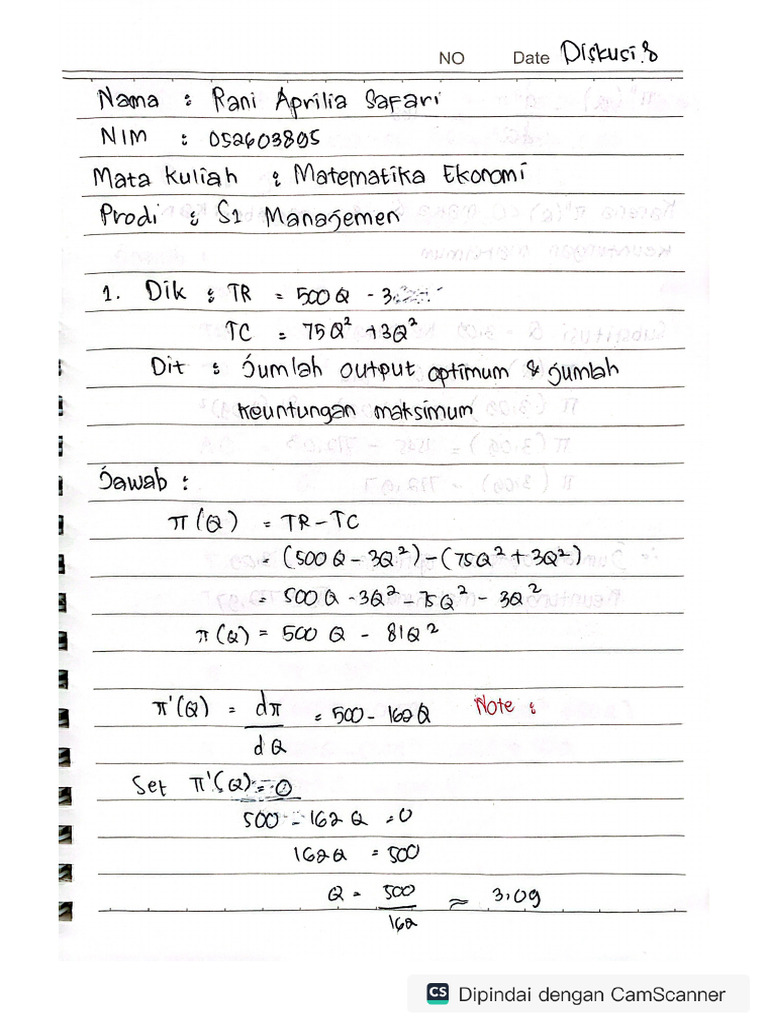 NO Date Diskusi.8
Nama : Rani Aprilia Safari
NIM : 052603895
Mata Kuliah : Matematika Ekonomi
Prodi : S1 Managemen
1. Dik : TR = 500Q - 3
TC = 75Q² + 3Q²
Dit : Jumlah output optimum & jumlah
keuntungan maksimum
Jawab :
π(Q) = TR - TC
= (500Q - 3Q²) - (75Q² + 3Q²)
= 500Q - 3Q² - 75Q² - 3Q²
π(Q) = 500 Q - 81Q²
π'(Q) = dπ/dQ = 500 - 162Q Note :
Set π'(Q) = 0
500 - 162Q = 0
162Q = 500
Q = 500/162 ≈ 3,09
CS Dipindai dengan CamScanner